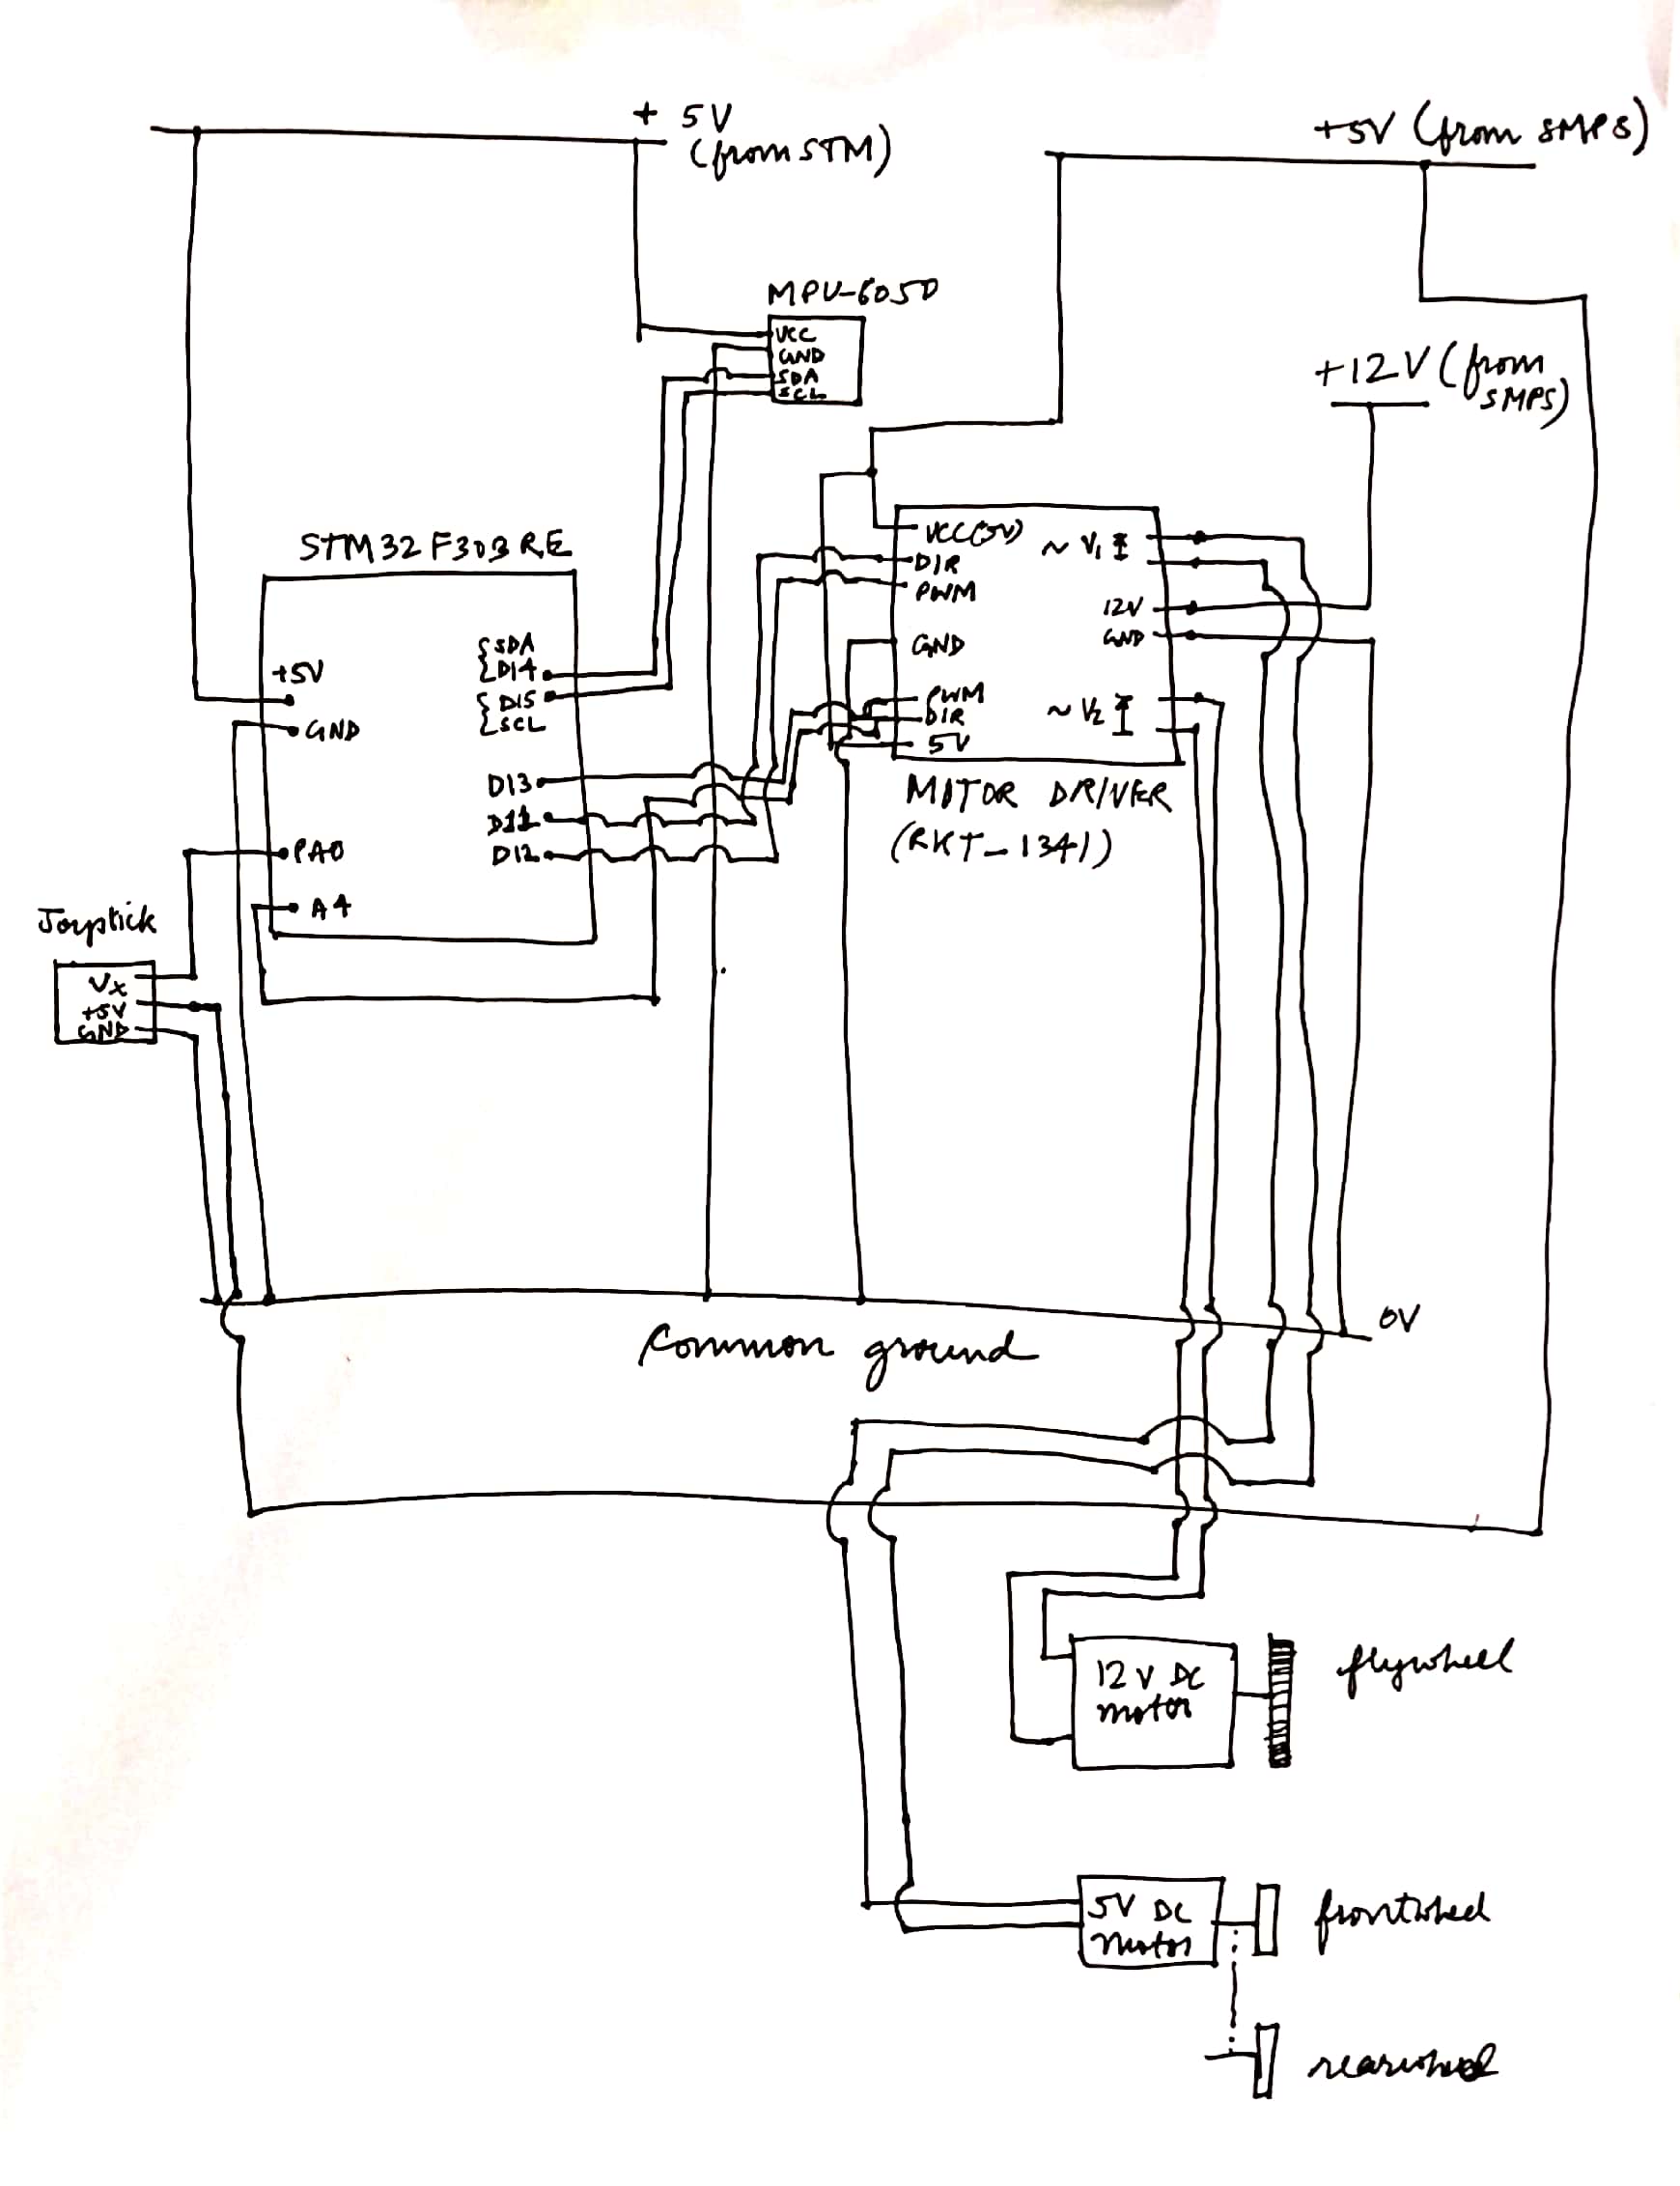 + 5V
(from STM)
+5V (from SMPS)
MPU-6050
VCC
GND
SDA
SCL
+12V (from
SMPS)
STM32 F303RE
+5V
GND
PA0
A4
SDA
D14
D15
SCL
D13
D11
D12
VCC(5V)
DIR
PWM
GND
PWM
DIR
5V
~ V1
12V
GND
~ V2
MOTOR DRIVER
(RKT-1341)
Joystick
Vx
+5V
GND
0V
Common ground
12 V DC
motor
flywheel
5V DC
motor
frontwheel
rearwheel